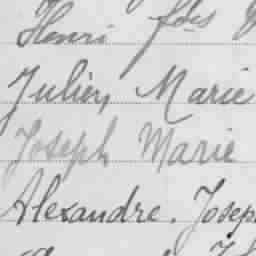 Henri
Julien Marie
Joseph Marie
Alexandre. Josep